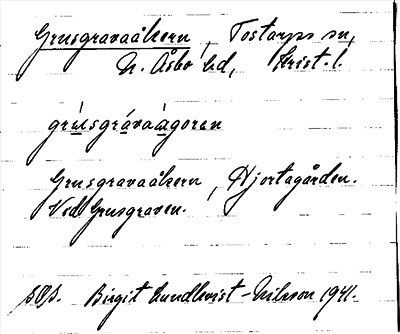 Grusgravaåkern, Tostarps sn,
N. Åsbo hd, Krist. l.
grúsgrávaàgoren
Grusgravaåkern, Hjortagården.
Ved Grusgraven.
Birgit Lundkvist-Nilsson 1941.